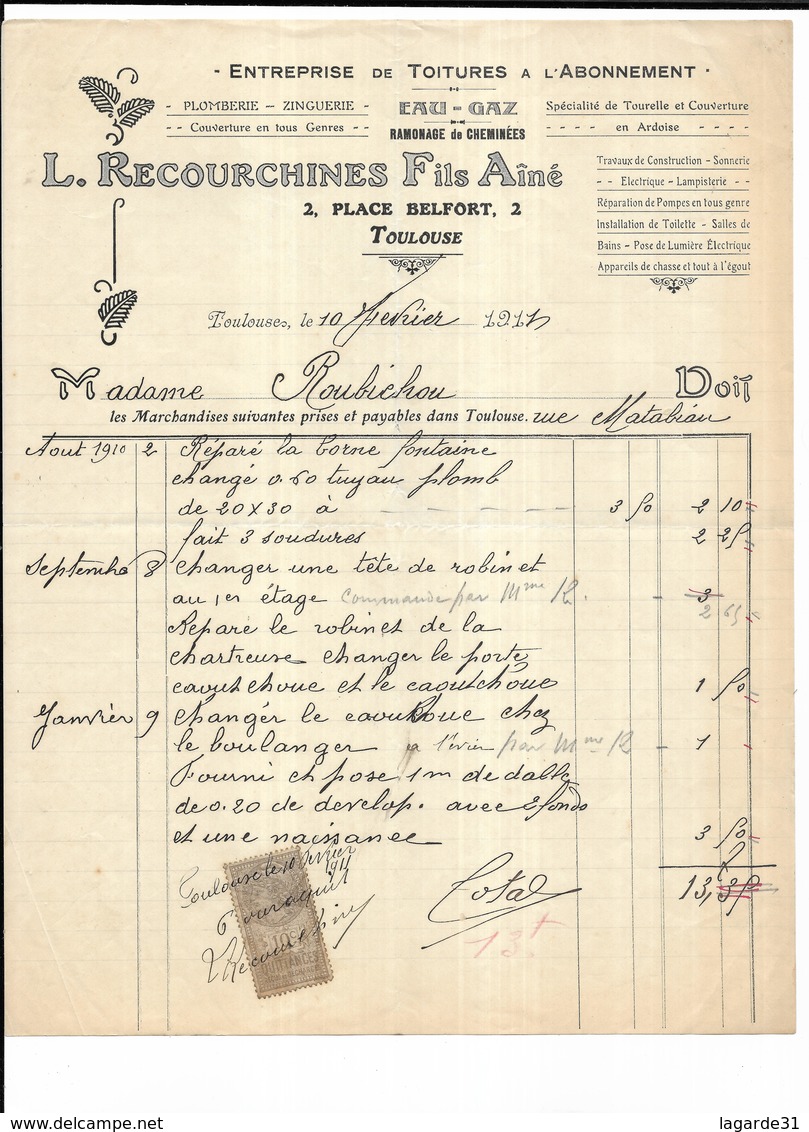 - ENTREPRISE DE TOITURES A L'ABONNEMENT -
- PLOMBERIE - ZINGUERIE -
EAU - GAZ
Spécialité de Tourelle et Couverture
- - Couverture en tous Genres - -
RAMONAGE de CHEMINÉES
- - - - en Ardoise - - - -
L. RECOURCHINES FILS AÎNÉ
2, PLACE BELFORT, 2
TOULOUSE
Travaux de Construction - Sonnerie
- - Electrique - Lampisterie - -
Réparation de Pompes en tous genre
Installation de Toilette - Salles de
Bains - Pose de Lumière Électrique
Appareils de chasse et tout à l'égout
Toulouse, le 10 fevrier 1911
Madame Roubichou Doit
les Marchandises suivantes prises et payables dans Toulouse. rue Matabiau
Aout 1910 2 Réparé la borne fontaine
changé 0.60 tuyau plomb
de 20 x 30 à - - - - - 3 50 2 10
fait 3 soudures 2 25
Septembre 8 changer une tête de robinet
au 1er étage commandé par Mme R. - 3
2 65
Reparé le robinet de la
chartreuse changer le porte
caoutchouc et le caoutchouc 1 50
Janvier 9 changér le caoutchouc chez
le boulanger a l'évier par Mme R - 1
Fourni et pose 1m de dalle
de 0.20 de develop. avec 2 fonds
et une naissance 3 50
Total 13,35
13.f
Toulouse le 10 fevrier
1911
Pour aquit
Recourchines
10c
QUITTANCES
lagarde31